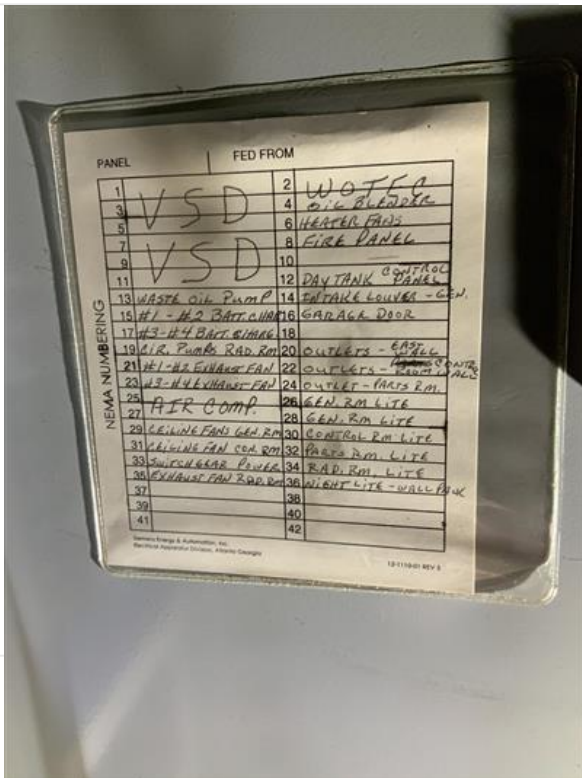 PANEL FED FROM
NEMA NUMBERING
1 2 WOTEC
3 VSD 4 OIL BLENDER
5 6 HEATER FANS
7 8 FIRE PANEL
9 VSD 10
11 12 DAY TANK CONTROL PANEL
13 WASTE OIL PUMP 14 INTAKE LOUVER - GEN.
15 #1 - #2 BATT. CHAR 16 GARAGE DOOR
17 #3 - #4 BATT. CHARG. 18
19 CIR. PUMPS RAD. RM 20 OUTLETS - EAST WALL
21 #1 - #2 EXHAUST FAN 22 OUTLETS - CONTROL ROOM WALL
23 #3 - #4 EXHAUST FAN 24 OUTLET - PARTS RM.
25 AIR COMP. 26 GEN. RM LITE
27 28 GEN. RM LITE
29 CEILING FANS GEN. RM 30 CONTROL RM LITE
31 CEILING FAN CON. RM 32 PARTS RM. LITE
33 SWITCHGEAR POWER 34 RAD. RM. LITE
35 EXHAUST FAN RAD. RM 36 NIGHT LITE - WALL PACK
37 38
39 40
41 42
Siemens Energy & Automation, Inc.
Electrical Apparatus Division, Atlanta Georgia
12-1110-01 REV 5